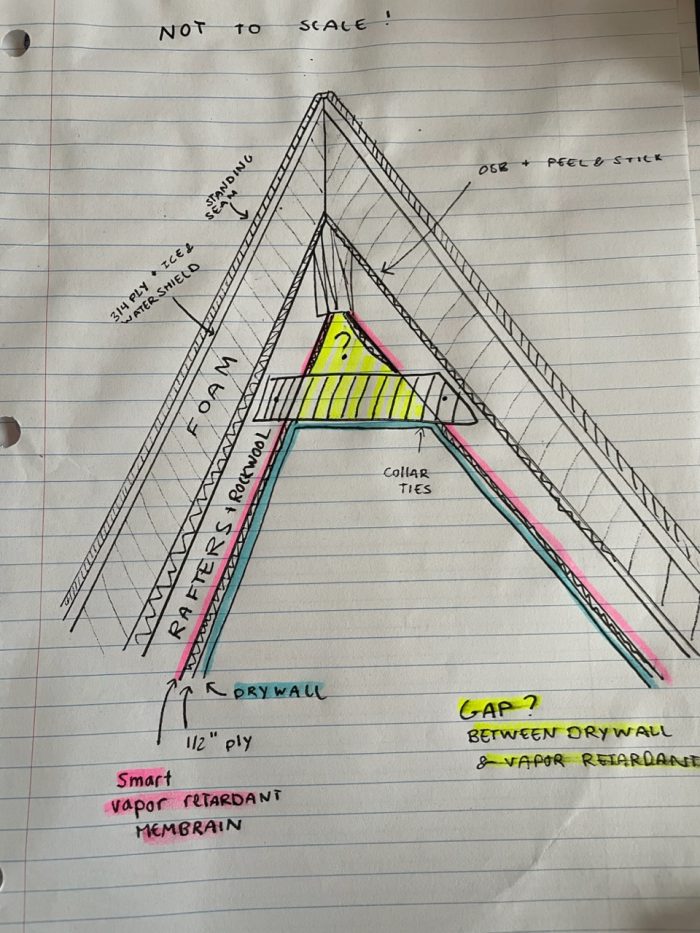 NOT TO SCALE!
STANDING
SEAM
OSB + PEEL & STICK
3/4 PLY + ICE &
WATER SHIELD
?
FOAM
RAFTERS + ROCKWOOL
COLLAR
TIES
DRYWALL
1/2" PLY
GAP?
BETWEEN DRYWALL
& VAPOR RETARDANT
Smart
vapor reTARDANT
MEMBRAIN